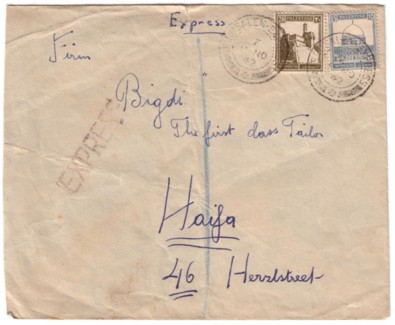 Express
Firm
Bigdi
The first class Tailor
EXPRESS
Haifa
46 Herzlstreet
PALESTINE
PALESTINE